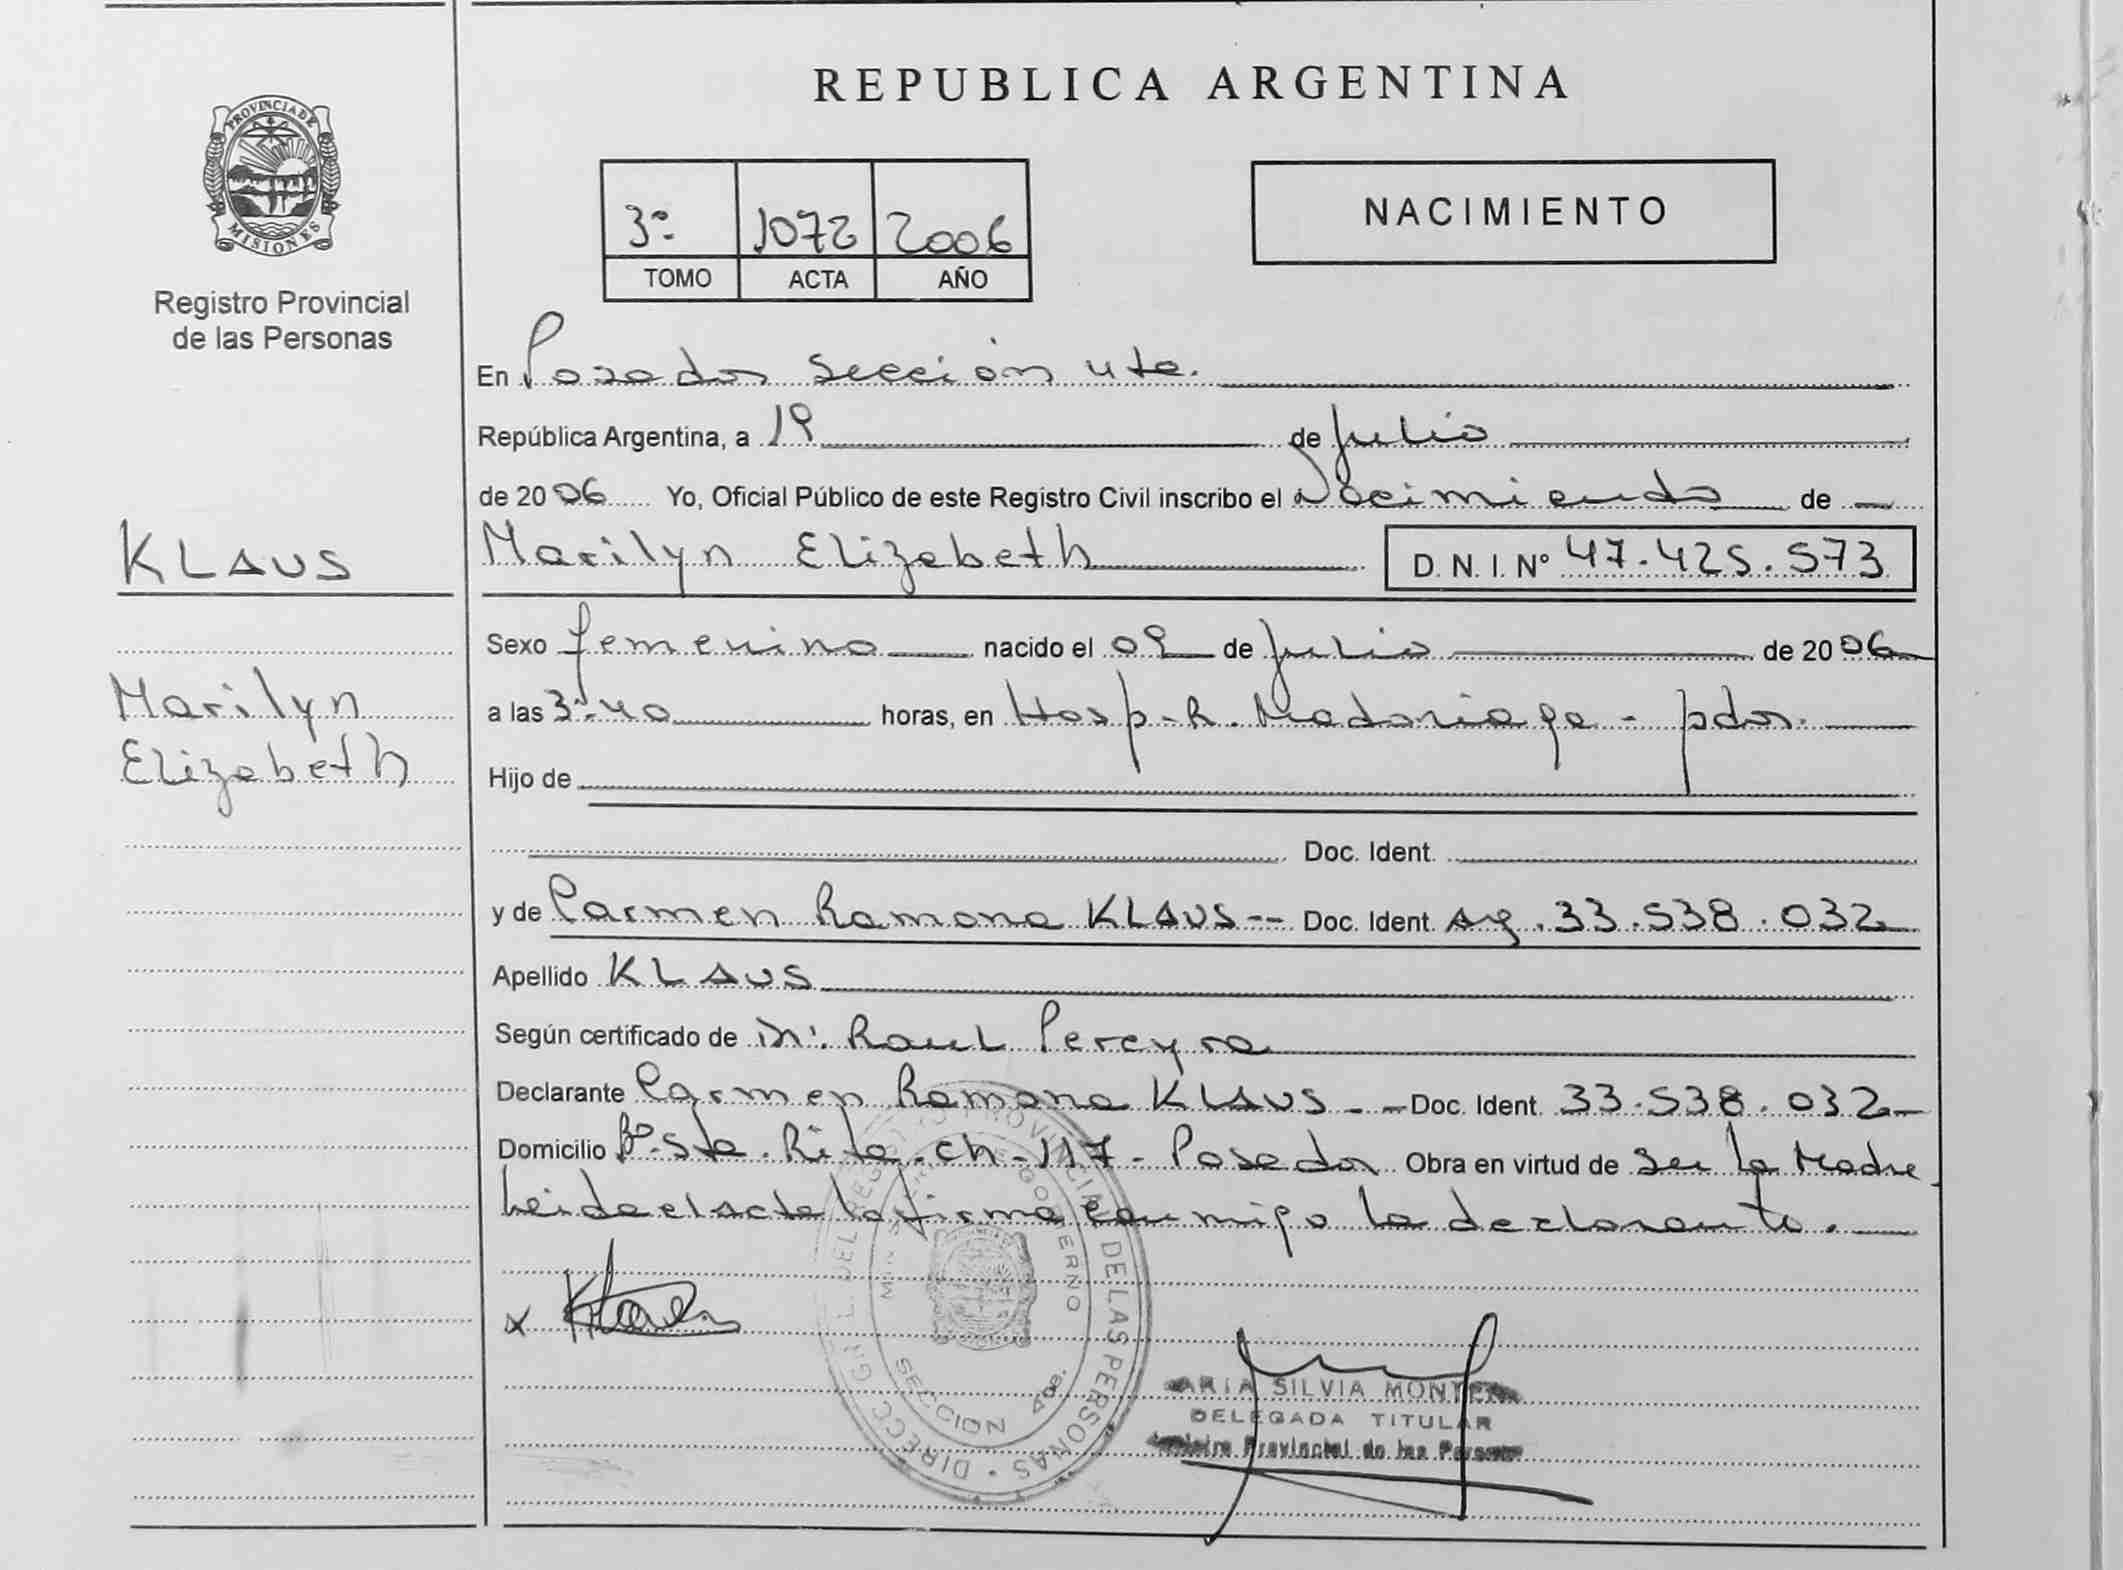 REPUBLICA ARGENTINA
PROVINCIA DE
MISIONES
Registro Provincial
de las Personas
3º 1072 2006
TOMO ACTA AÑO
NACIMIENTO
En Posadas Sección 4ta.
República Argentina, a 19 de Julio
de 2006 Yo, Oficial Público de este Registro Civil inscribo el Nacimiento de
KLAUS
Marilyn Elizabeth
D. N. I. Nº 47.425.573
Sexo femenino nacido el 09 de Julio de 2006
Marilyn
Elizabeth
a las 3:40 horas, en Hosp. R. Madariaga - pdas.
Hijo de
Doc. Ident.
y de Carmen Ramona KLAUS -- Doc. Ident. Arg. 33.538.032
Apellido KLAUS
Según certificado de Dr. Raul Pereyra
Declarante Carmen Ramona KLAUS - - Doc. Ident. 33.538.032
Domicilio Bº Sta. Rita - ch - 117 - Posadas Obra en virtud de ser la Madre
Leida el acta la firma conmigo la declarante.
x
DIRECC. GRAL. DEL REGISTRO PROVINCIAL DE LAS PERSONAS
GOBIERNO
SECCION 4ta.
ARIA SILVIA MONTE
DELEGADA TITULAR
Provincial de las Personas